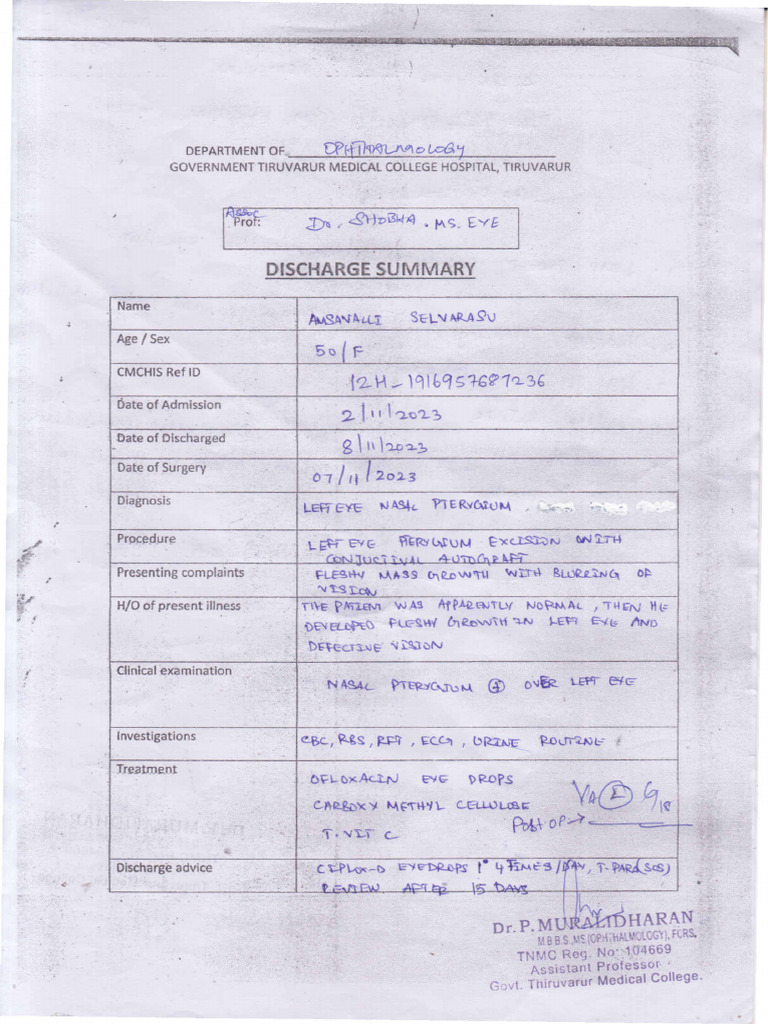 DEPARTMENT OF OPHTHALMOLOGY
GOVERNMENT TIRUVARUR MEDICAL COLLEGE HOSPITAL, TIRUVARUR
Assoc
Prof: Dr. SHOBHA . MS. EYE
DISCHARGE SUMMARY
Name AMSAVALLI SELVARASU
Age / Sex 50/F
CMCHIS Ref ID 12H-1916957687236
Date of Admission 2/11/2023
Date of Discharged 8/11/2023
Date of Surgery 07/11/2023
Diagnosis LEFT EYE NASAL PTERYGIUM .
Procedure LEFT EYE PTERYGIUM EXCISION WITH
CONJUCTIVAL AUTOGRAFT
Presenting complaints FLESHY MASS GROWTH WITH BLURRING OF
VISION
H/O of present illness THE PATIENT WAS APPARENTLY NORMAL, THEN HE
DEVELOPED FLESHY GROWTH IN LEFT EYE AND
DEFECTIVE VISION
Clinical examination NASAL PTERYGIUM ⊕ OVER LEFT EYE
Investigations CBC, RBS, RFT, ECG, URINE ROUTINE
Treatment OFLOXACIN EYE DROPS
CARBOXY METHYL CELLULOSE
T. VIT C
Post OP → VA 6/18
Discharge advice CIPLOX-D EYEDROPS 1° 4 TIMES/DAY, T. PARA (SOS)
REVIEW AFTER 15 DAYS
Dr. P. MURALIDHARAN
M.B.B.S.,MS(OPHTHALMOLOGY), FCRS,
TNMC Reg. No: 104669
Assistant Professor
Govt. Thiruvarur Medical College.